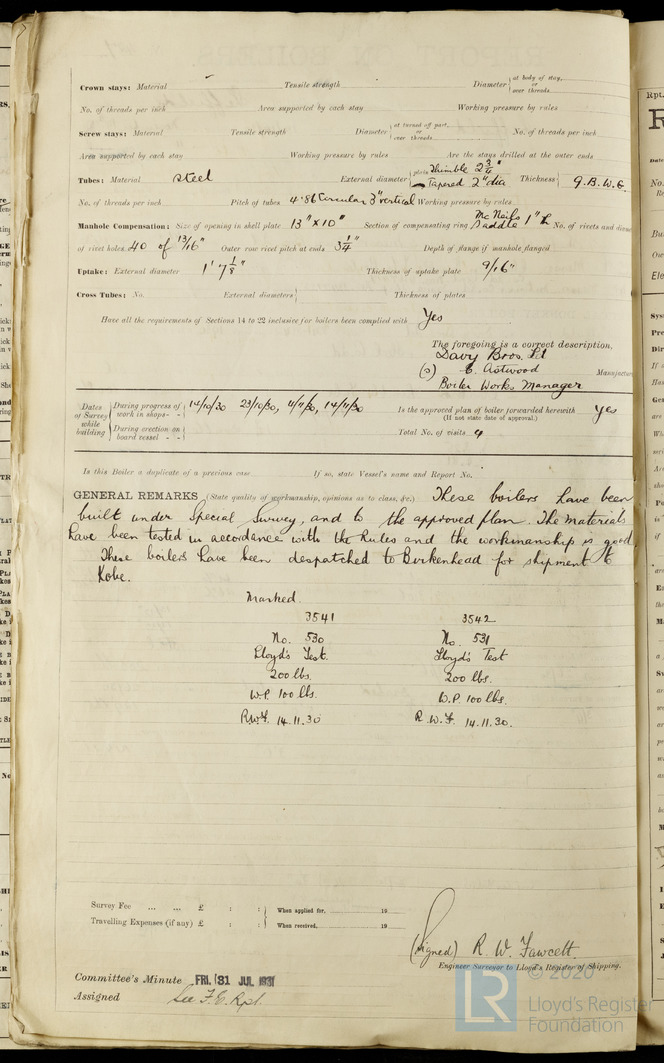 Crown stays: Material Tensile strength Diameter at body of stay, or over threads
No. of threads per inch Area supported by each stay Working pressure by rules
Screw stays: Material Tensile strength Diameter at turned off part, or over threads No. of threads per inch
Area supported by each stay Working pressure by rules Are the stays drilled at the outer ends
Tubes: Material steel External diameter plain Thimble 2 3/4" Tapered 2" dia Thickness 9.B.W.G.
No. of threads per inch Pitch of tubes 4.86 Circular 3" vertical Working pressure by rules
Manhole Compensation: Size of opening in shell plate 13" x 10" Section of compensating ring Mc Neils Saddle 1" L No. of rivets and diame
of rivet holes 40 of 13/16" Outer row rivet pitch at ends 3 1/4" Depth of flange if manhole flanged
Uptake: External diameter 1' 7 1/8" Thickness of uptake plate 9/16"
Cross Tubes: No. External diameters Thickness of plates
Have all the requirements of Sections 14 to 22 inclusive for boilers been complied with Yes
The foregoing is a correct description,
Davy Bros. Ltd
(s) E. Astwood Manufactur
Boiler Works Manager
Dates of Survey while building During progress of work in shops - - 14/10/30 23/10/30, 4/11/30, 14/11/30 Is the approved plan of boiler forwarded herewith Yes
(If not state date of approval.)
During erection on board vessel - - Total No. of visits 4
Is this Boiler a duplicate of a previous case If so, state Vessel's name and Report No.
GENERAL REMARKS (State quality of workmanship, opinions as to class, &c.) These boilers have been
built under Special Survey, and to the approved plan. The materials
have been tested in accordance with the Rules and the workmanship is good
These boilers have been despatched to Birkenhead for shipment to
Kobe.
Marked.
3541 3542
No. 530 No. 531
Lloyd's Test. Lloyd's Test
200 lbs. 200 lbs.
W.P. 100 lbs. W.P. 100 lbs.
R.W.F. 14.11.30 R.W.F. 14.11.30.
Survey Fee ... ... £ : : When applied for, 19
Travelling Expenses (if any) £ : : When received, 19
(signed) R. W. Fawcett.
Engineer Surveyor to Lloyd's Register of Shipping.
Committee's Minute FRI. 31 JUL 1931
Assigned See F.E. Rpt.
© 2020
LR
Lloyd's Register
Foundation